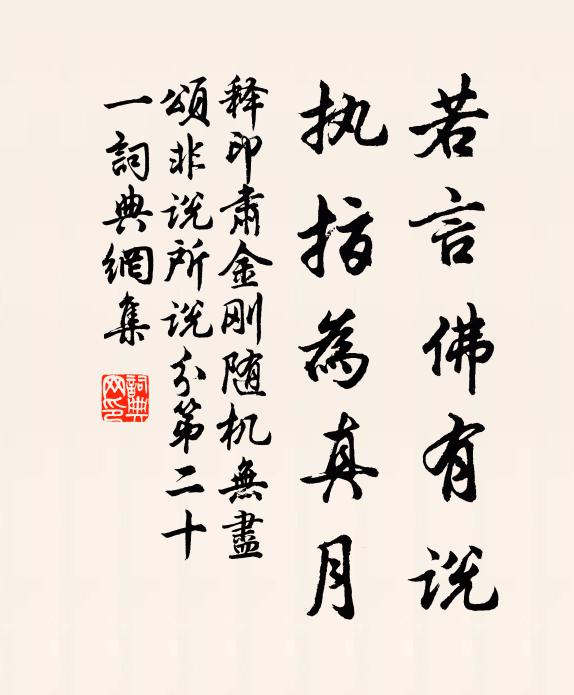 若言佛有说
执指為真月
释印肃金刚随机無盡
頌非说所说分第二十
一詞典網集
詞典网印